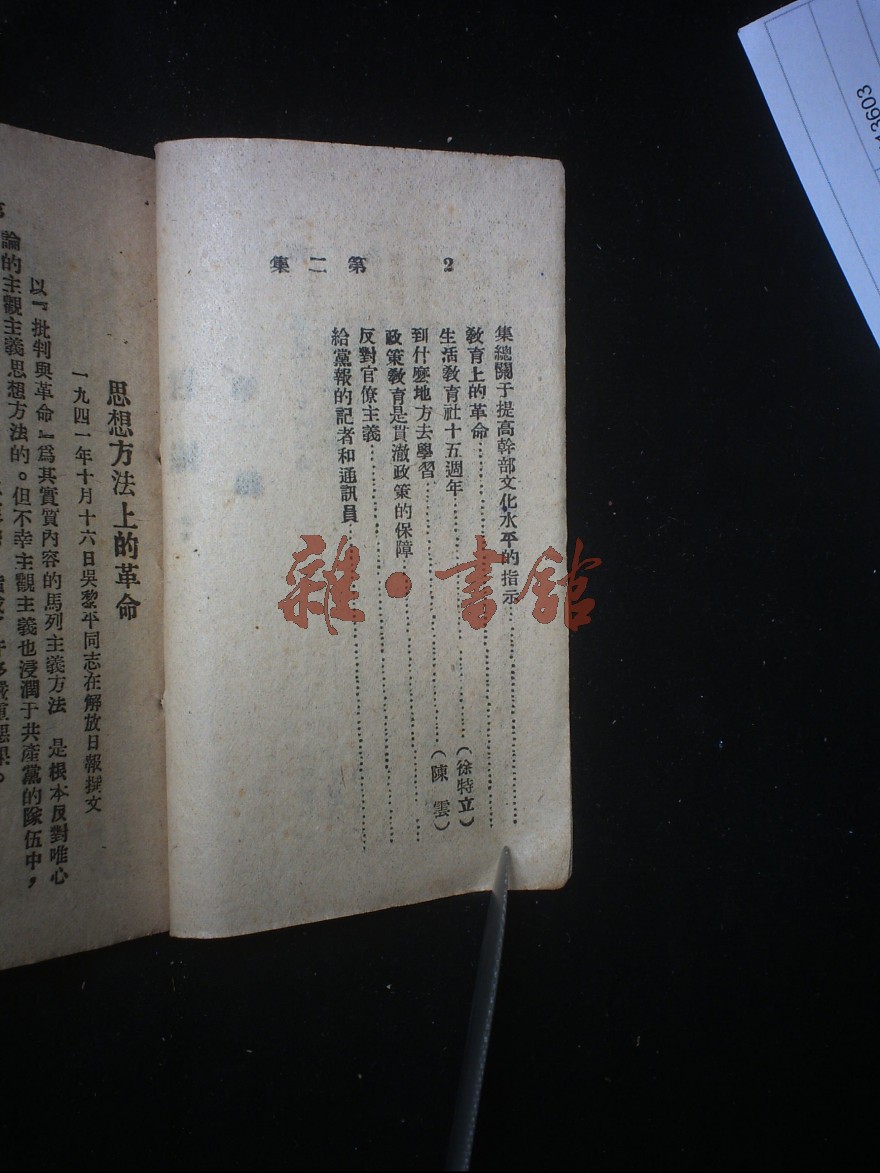 2
第二集
集總關于提高幹部文化水平的指示
教育上的革命
生活教育社十五週年（徐特立）
到什麽地方去學習（陳雲）
政策教育是貫澈政策的保障
反對官僚主義
給黨報的記者和通訊員
思想方法上的革命
一九四一年十月十六日吳黎平同志在解放日報撰文
以『批判與革命』爲其實質內容的馬列主義方法　是根本反對唯心
論的主觀主義思想方法的。但不幸主觀主義也浸潤于共產黨的隊伍中，
雜·書舘
3603